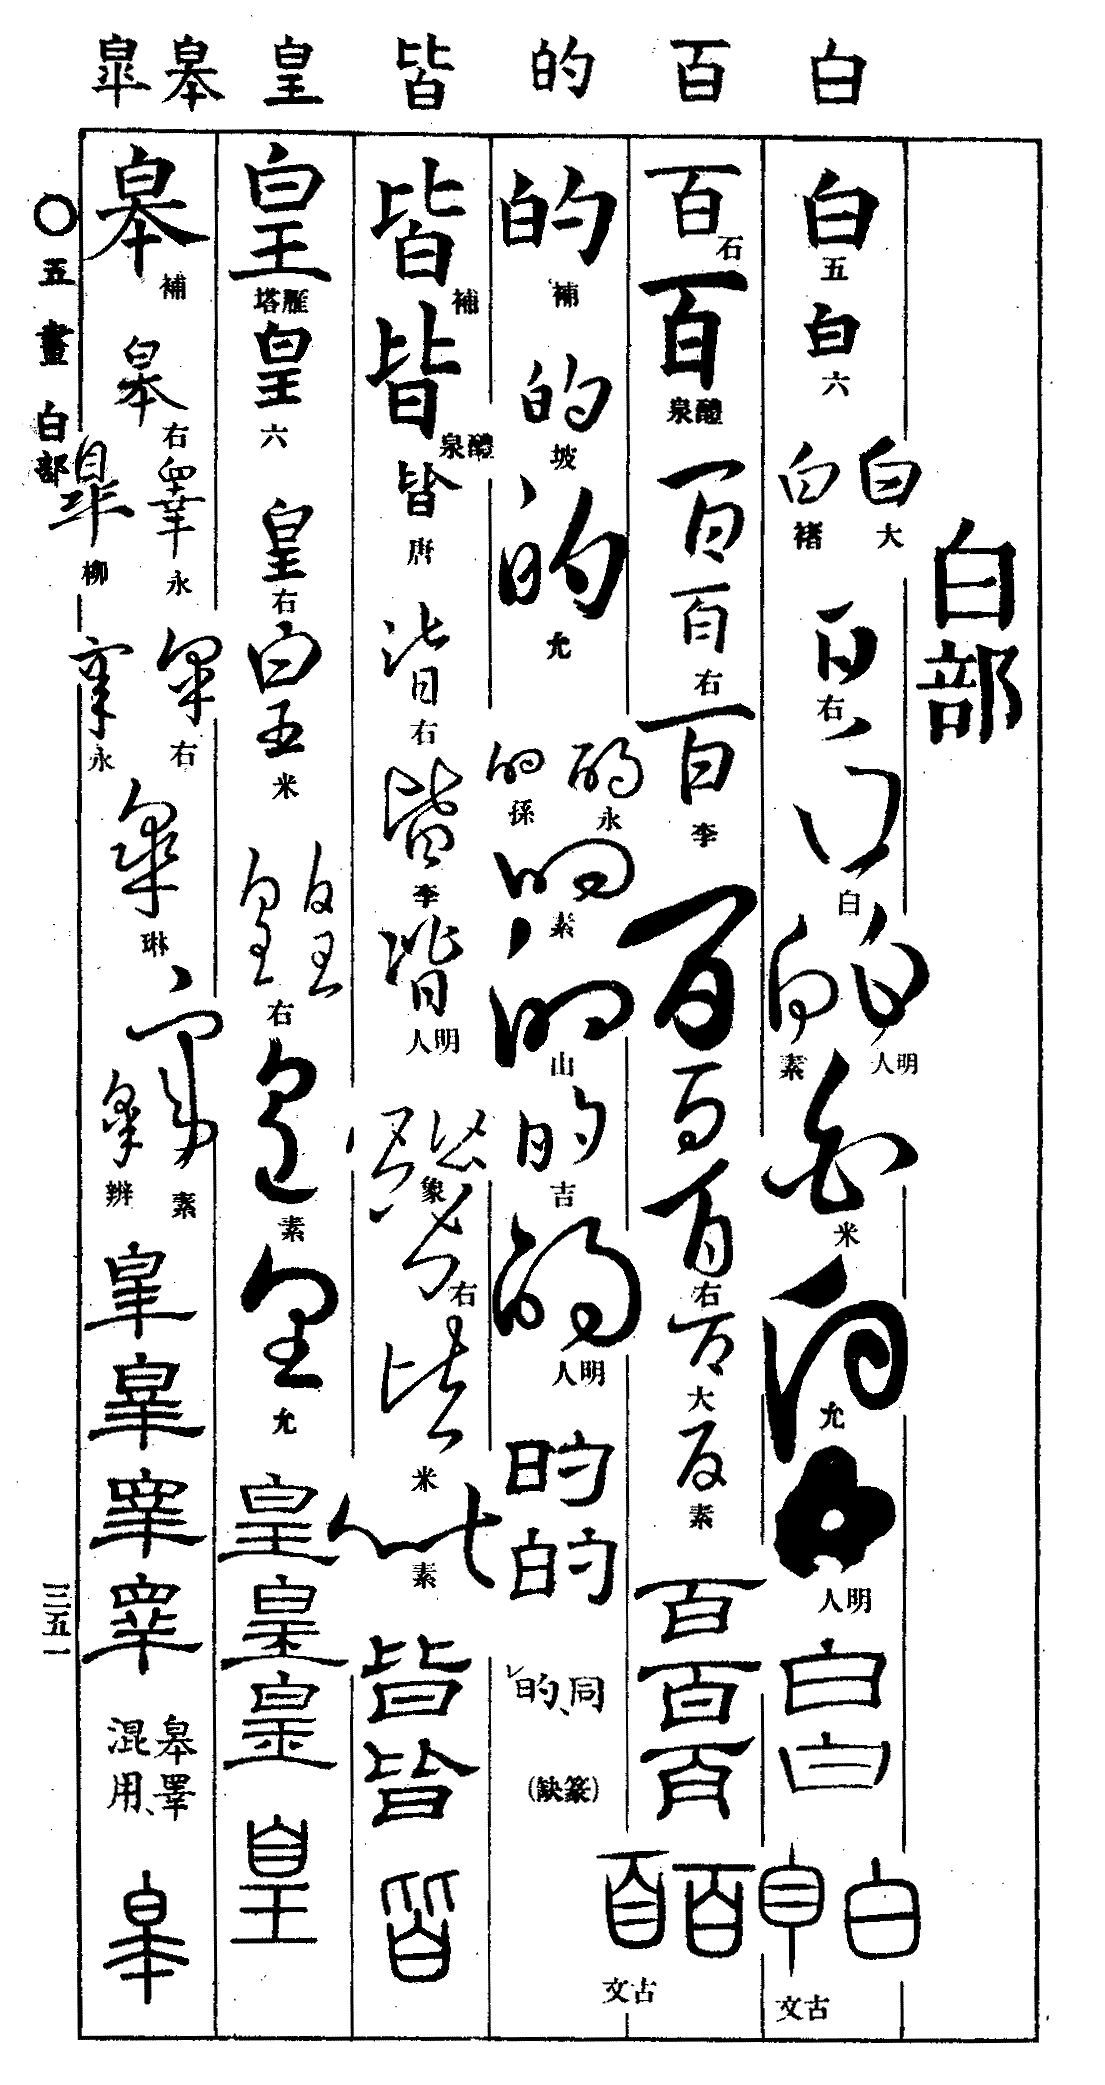 白 百 的 皆 皇 皋 皐
白部
白 五 白 六 白 大 白 褚 白 右 白 白 白 明人 白 素 白 米 白 允 白 明人 白 白 白 白 古文
百 石 百 醴泉 百 百 右 百 李 百 百 百 右 百 大 百 素 百 百 百 百 百 古文
的 補 的 坡 的 允 的 永 的 孫 的 素 的 山 的 吉 的 明人 的 的 的、同 (篆缺)
皆 補 皆 醴泉 皆 唐 皆 右 皆 李 皆 明人 皆 皆 象 皆 右 皆 米 皆 素 皆 皆 皆
皇 雁塔 皇 六 皇 右 皇 米 皇 皇 右 皇 素 皇 允 皇 皇 皇 皇
皋 補 皋 右 睪 永 柳 右 永 琳 素 辨 皋睪混用、 皋
〇五畫 白部
三五一